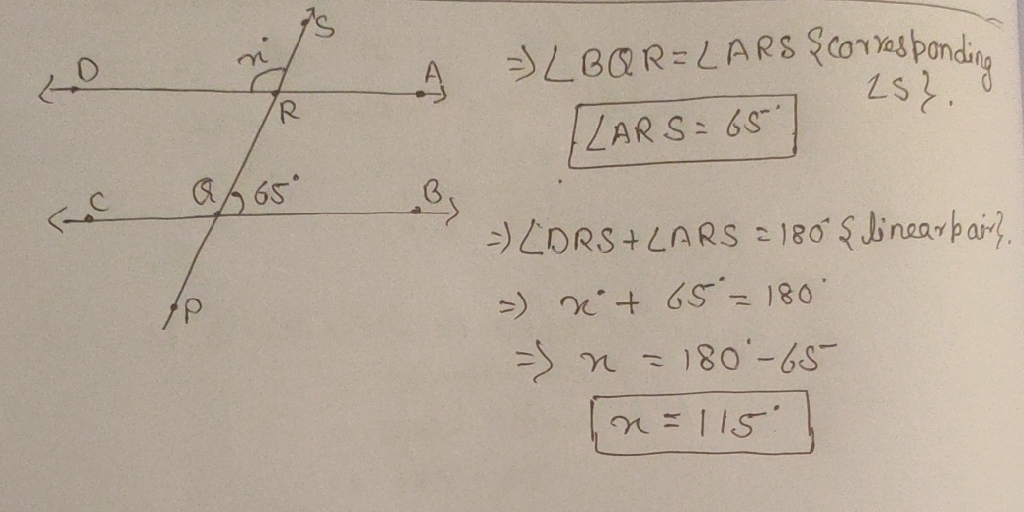 S
x°
D
A
R
⇒ ∠BQR = ∠ARS {corresponding
∠s}.
∠ARS = 65°
C
Q
65°
B
P
⇒ ∠DRS + ∠ARS = 180° {linear pair}.
⇒ x° + 65° = 180°
⇒ x = 180° - 65
x = 115°